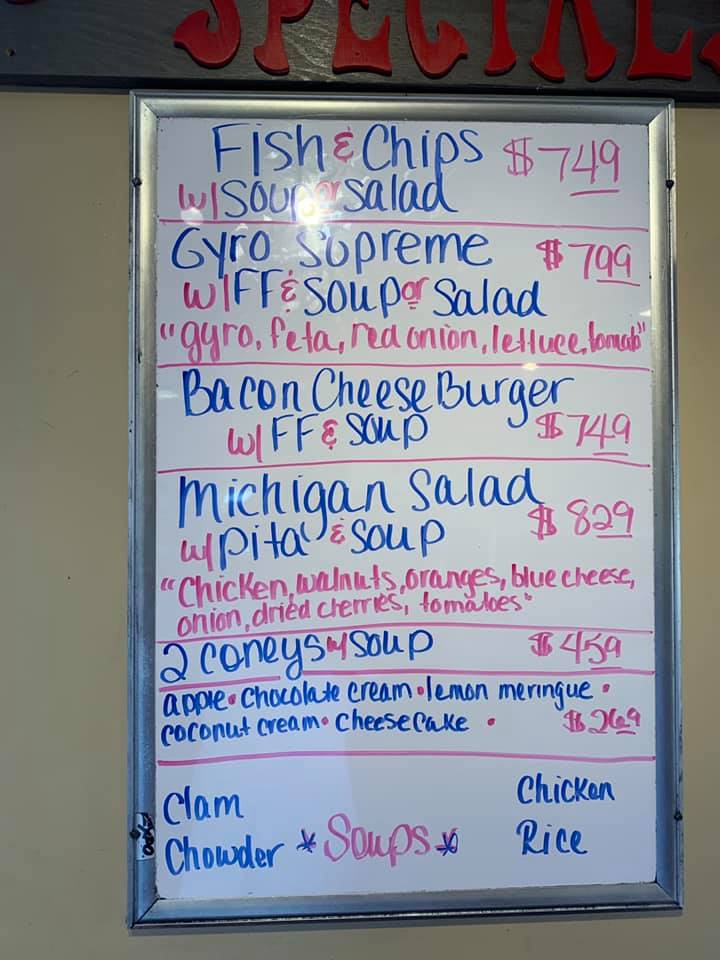 SPECIALS
Fish & Chips $7 49
w/ Soup or Salad
Gyro Supreme $7 99
w/ FF & Soup or Salad
"gyro, feta, red onion, lettuce, tomato"
Bacon Cheese Burger
w/ FF & Soup $7 49
Michigan Salad
w/ pita & Soup $8 29
"Chicken, walnuts, oranges, blue cheese,
onion, dried cherries, tomatoes"
2 coneys w/ Soup $4 59
apple • chocolate cream • lemon meringue •
coconut cream • cheese cake • $2 69
Clam Chicken
Chowder * Soups * Rice
EXPO